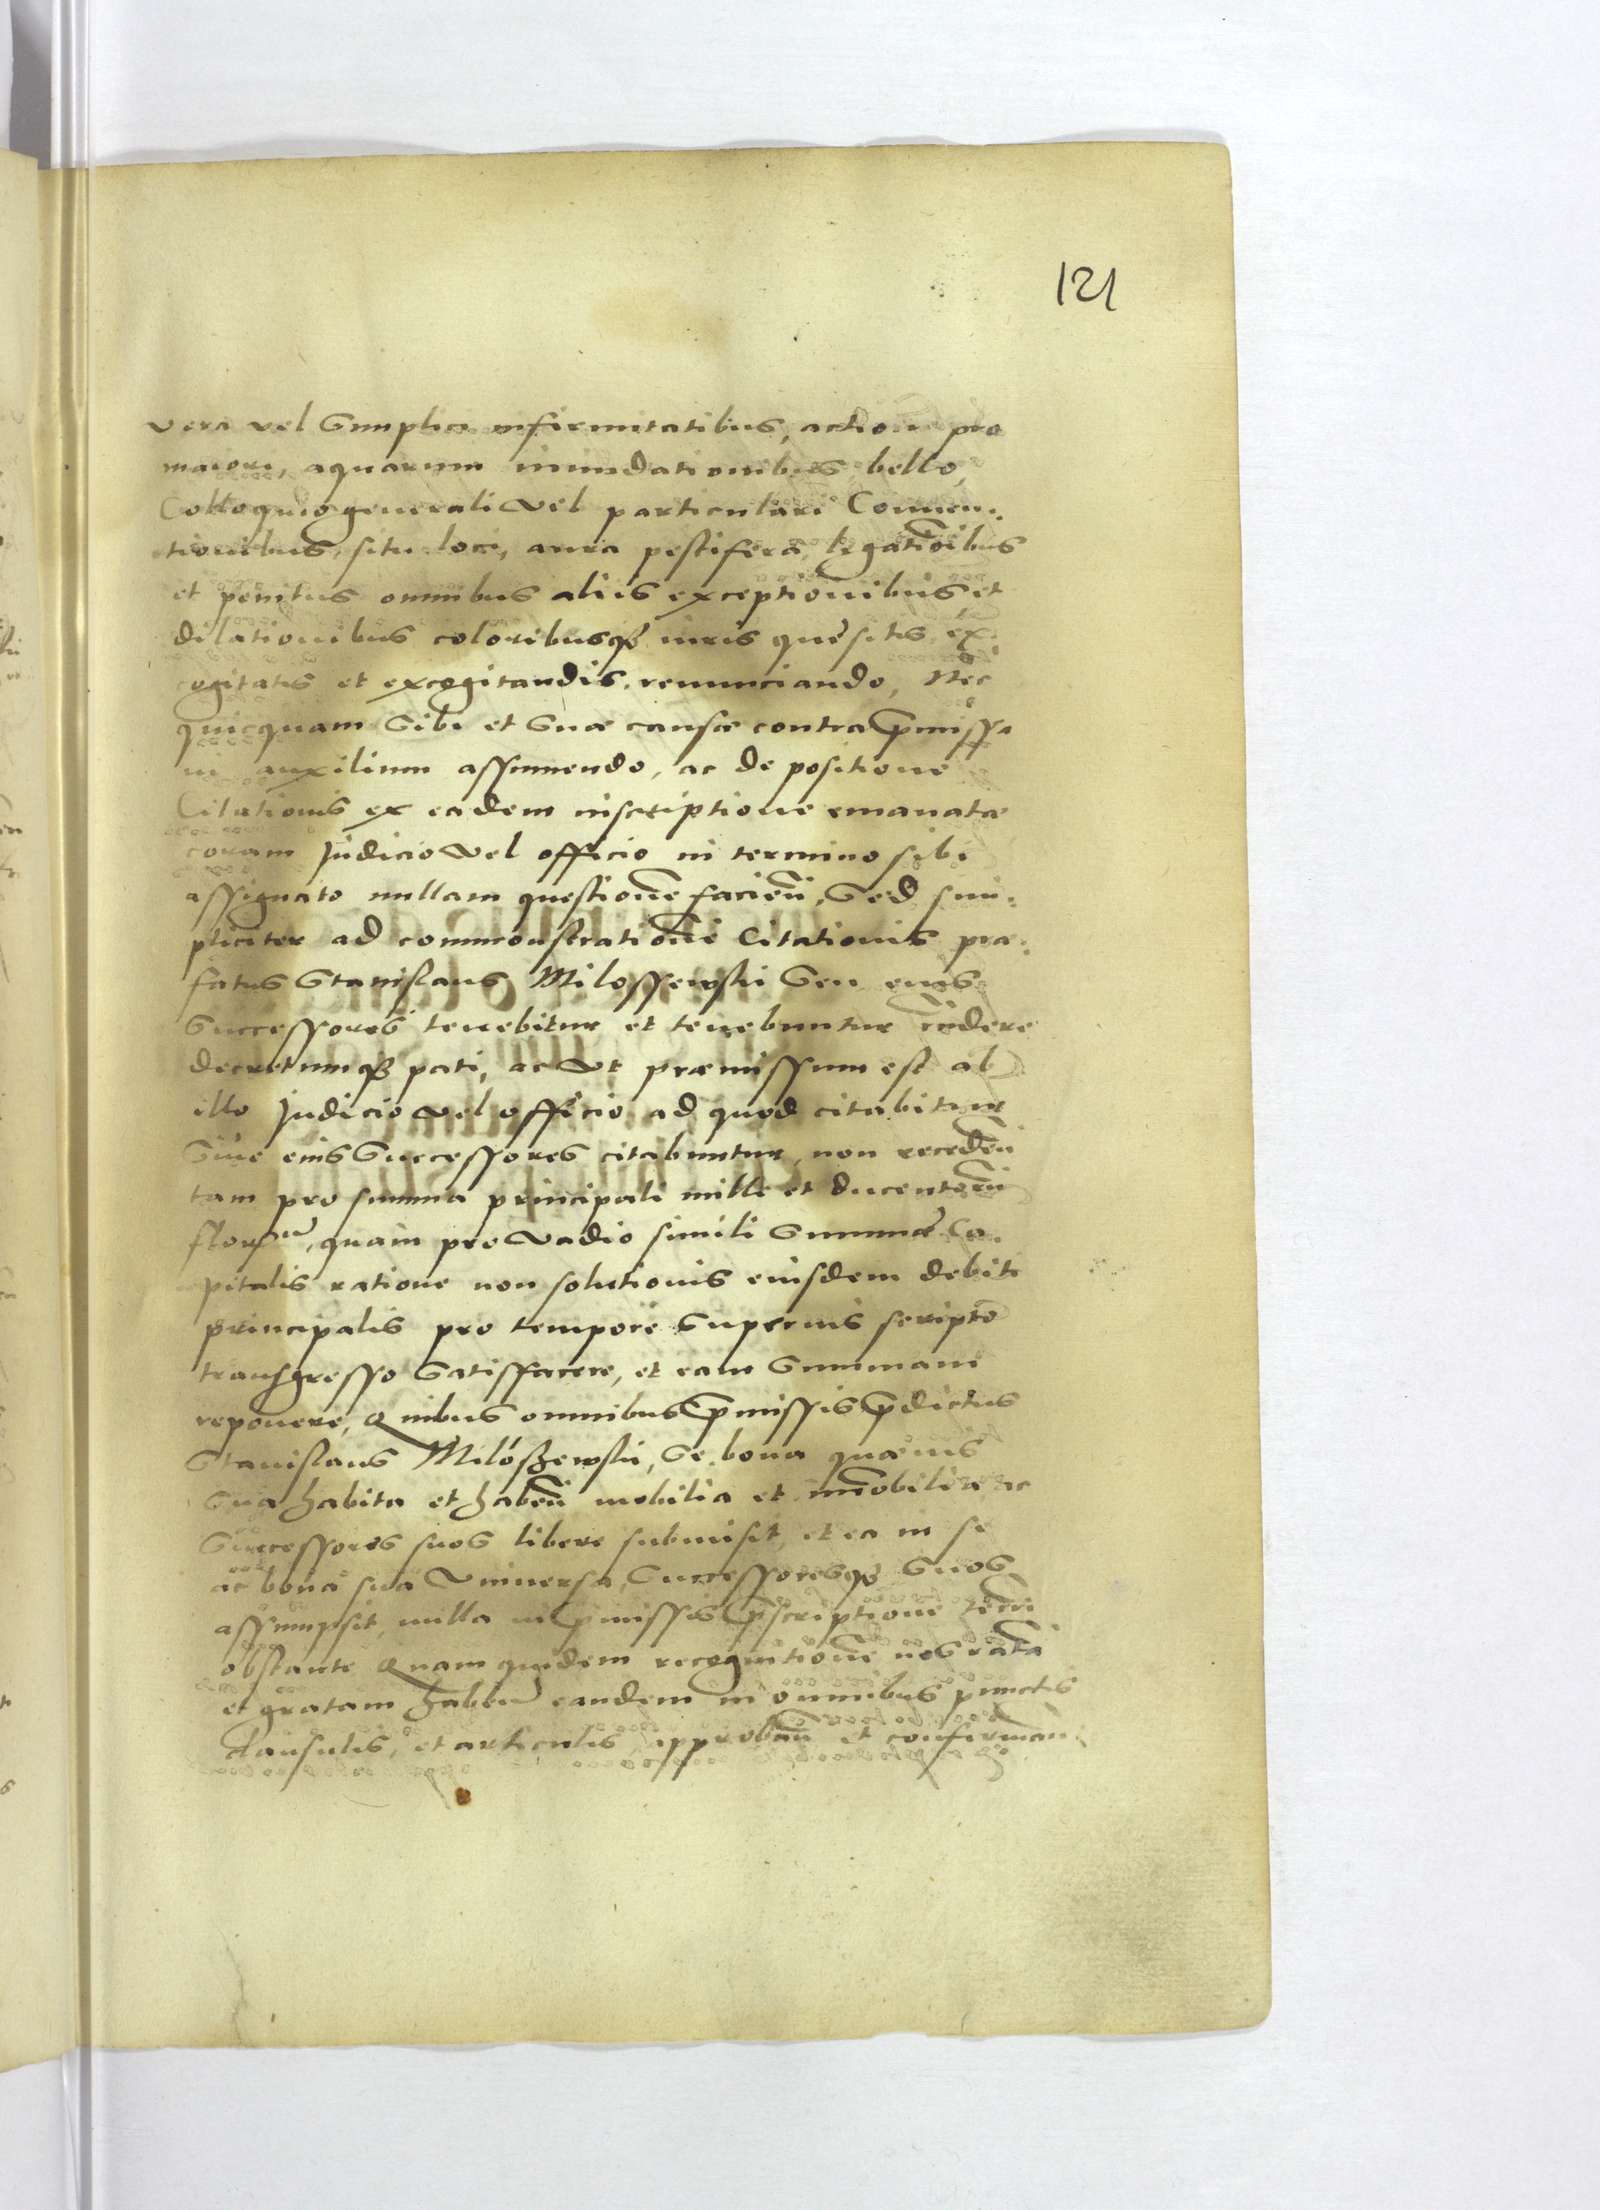 121
vera vel Simplice infirmitatibus, actione pro
maiori, aquarum inundationibus bello,
Colloquio generali vel particulari Conuen-
tionibus, situ loci, aura pestifera, legationibus
et penitus omnibus aliis exceptionibus et
dilationibus coloribusq iuris quesitis ex-
cogitatis et excogitandis renunciando, Nec
quicquam Sibi et Suæ causæ contra pmissa
in auxilium assumendo, ac de positione
Citationis ex eadem inscriptione emanatæ
coram Judicio vel officio in termino sibi
assignato nullam questione facien, Sed sim-
pliciter ad commonstratione Citationis præ-
fatus Stanislaus Milossewski Seu eius
Successores tenebitur et tenebuntur rndere
decretumq pati, ac vt præmissum est ab
illo Judicio vel officio ad quod citabitur
Siue eius Successores citabuntur, non receden
tam pro summa principali mille et ducentoru
flor, quam pro vadio simili Summæ Ca-
pitalis ratione non solutionis eiusdem debiti
principalis pro tempore Superius scripto
transgresso Satisfacere, et eam Summam
reponere, Quibus omnibus pmissis pdictus
Stanislaus Milószewski, Se bona quæuis
Sua habita et haben mobilia et immobilia ac
Successores suos libere submisit, et ea in se
ac bona sua Vniuersa, Successoresq Suos
assumpsit, nulla in pmissis pscriptione terri
obstante Quam quidem recognitione nos rata
et gratam haben eandem in omnibus punctis
clausulis, et articulis approban et confirman